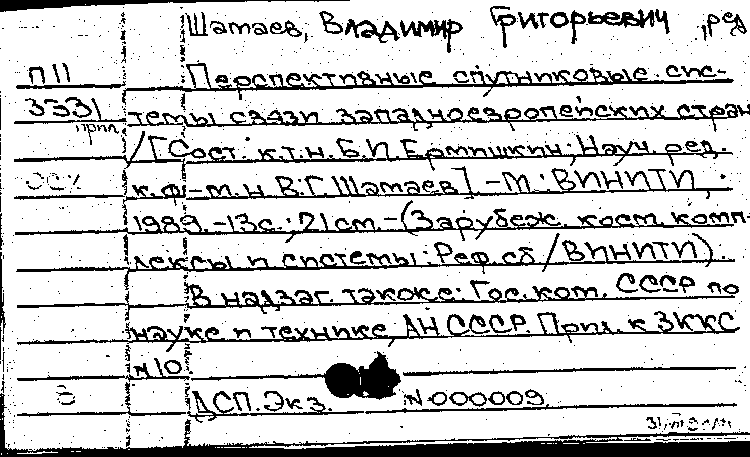 Шатаев, Владимир Григорьевич, ред
П11 Перспективные спутниковые сис-
3331 темы связи западноевропейских стран
прил. /[Сост. к.т.н. Б.И. Ермишкин; Науч. ред.
к.ф.-м.н В.Г. Шатаев] -М.: ВИНИТИ,
1989. -13с.; 21см. -(Зарубеж. косм. комп-
лексы и системы: Реф. сб / ВИНИТИ).
В надзаг. также: Гос. ком. СССР по
науке и технике, АН СССР. Прил. к ЗККС
N10
ДСП. Экз. N 000009